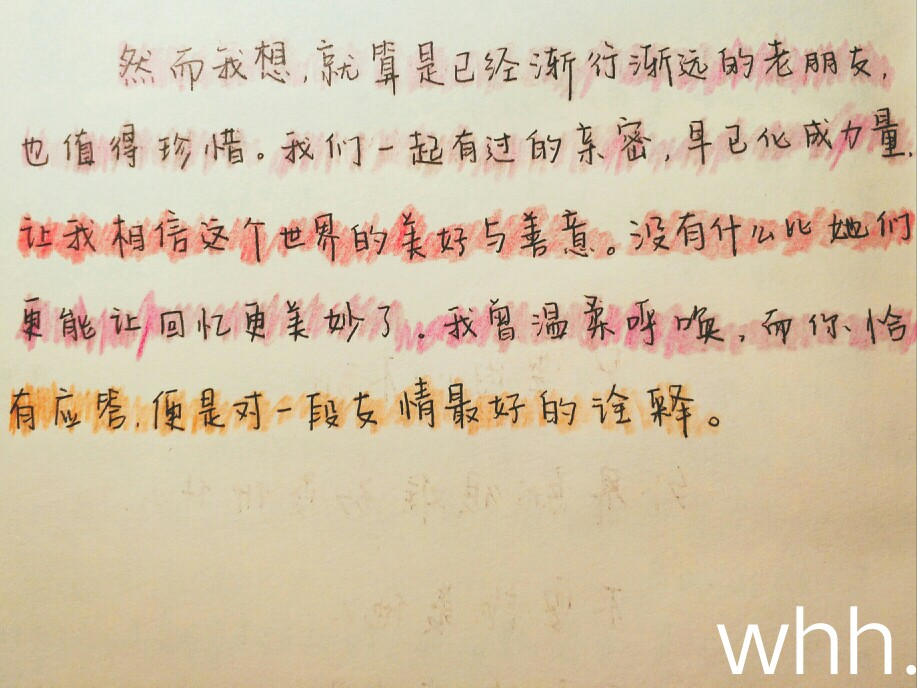 然而我想,就算是已经渐行渐远的老朋友,
也值得珍惜。我们一起有过的亲密,早已化成力量,
让我相信这个世界的美好与善意。没有什么比她们
更能让回忆更美妙了。我曾温柔呼唤,而你恰
有应答,便是对一段友情最好的诠释。
whh.